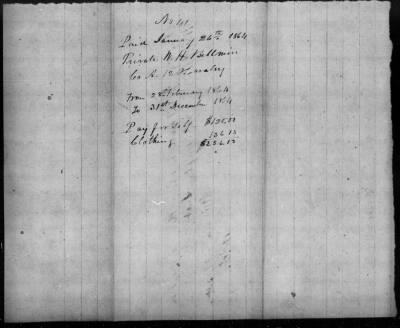 No 41
Paid January 26th 1864
Private W. H. Bellmin
Co A. 12 Cavalry
From 28 February 1864
To 31st December 1864
Pay for Self $120.00
Clothing 136.13
$256.13